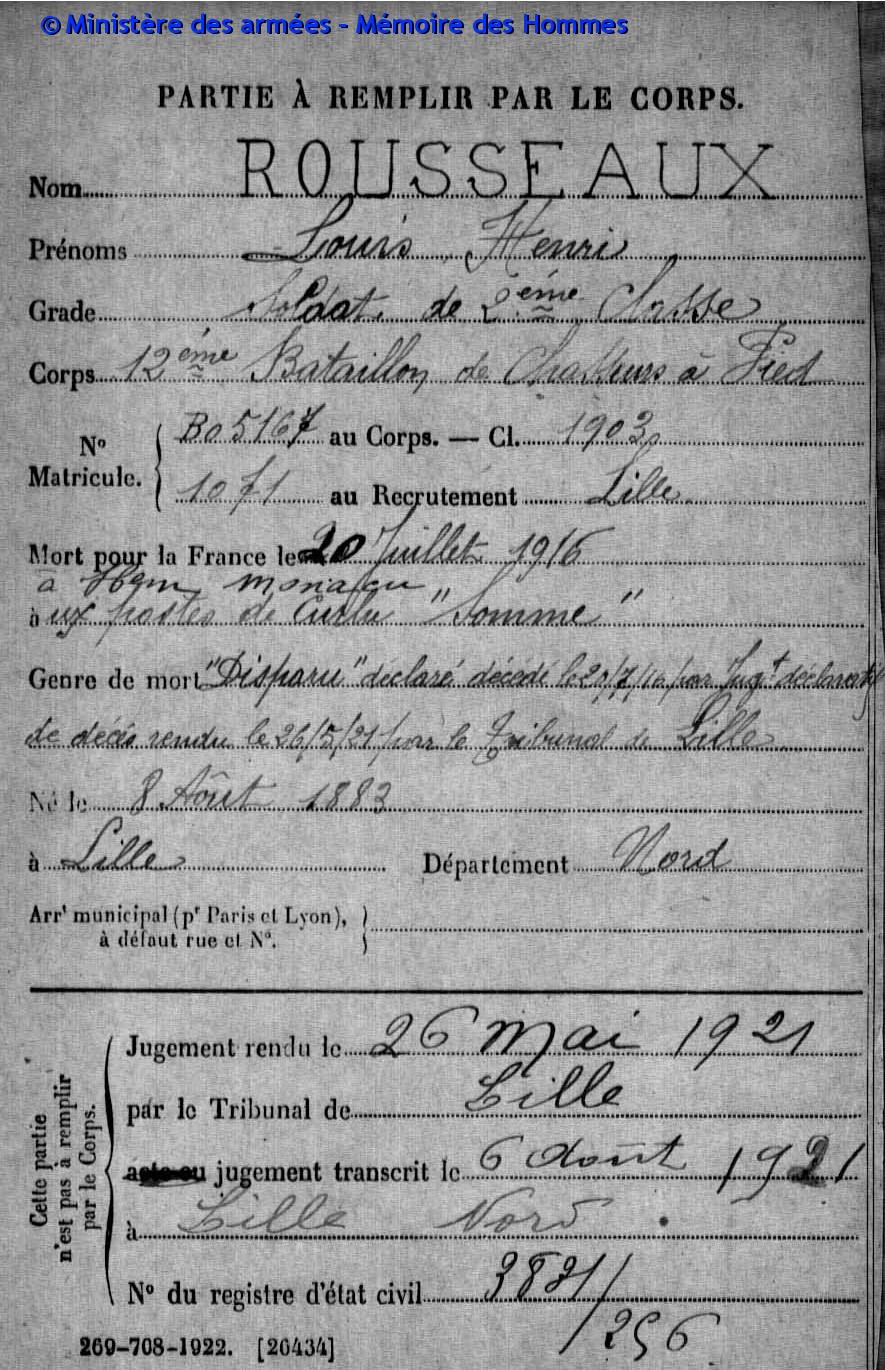 © Ministère des armées - Mémoire des Hommes
PARTIE À REMPLIR PAR LE CORPS.
Nom ROUSSEAUX
Prénoms Louis Henri
Grade Soldat de 2ème Classe
Corps 12ème Bataillon de Chasseurs à Pied
No Matricule. { B05167 au Corps. — Cl. 1903
1071 au Recrutement Lille
Mort pour la France le 20 Juillet 1916
à Hem monacu
aux postes de Curlu "Somme"
Genre de mort "Disparu" déclaré décédé le 20/7/16 par Jugt déclaratif
de décès rendu le 26/5/21 par le Tribunal de Lille
Né le 8 Août 1883
à Lille Département Nord
Arrt municipal (pr Paris et Lyon),
à défaut rue et No.
Cette partie n'est pas à remplir par le Corps.
Jugement rendu le 26 Mai 1921
par le Tribunal de Lille
acte ou jugement transcrit le 6 août 1921
à Lille Nord.
No du registre d'état civil 3821/
/256
269-708-1922. [26434]